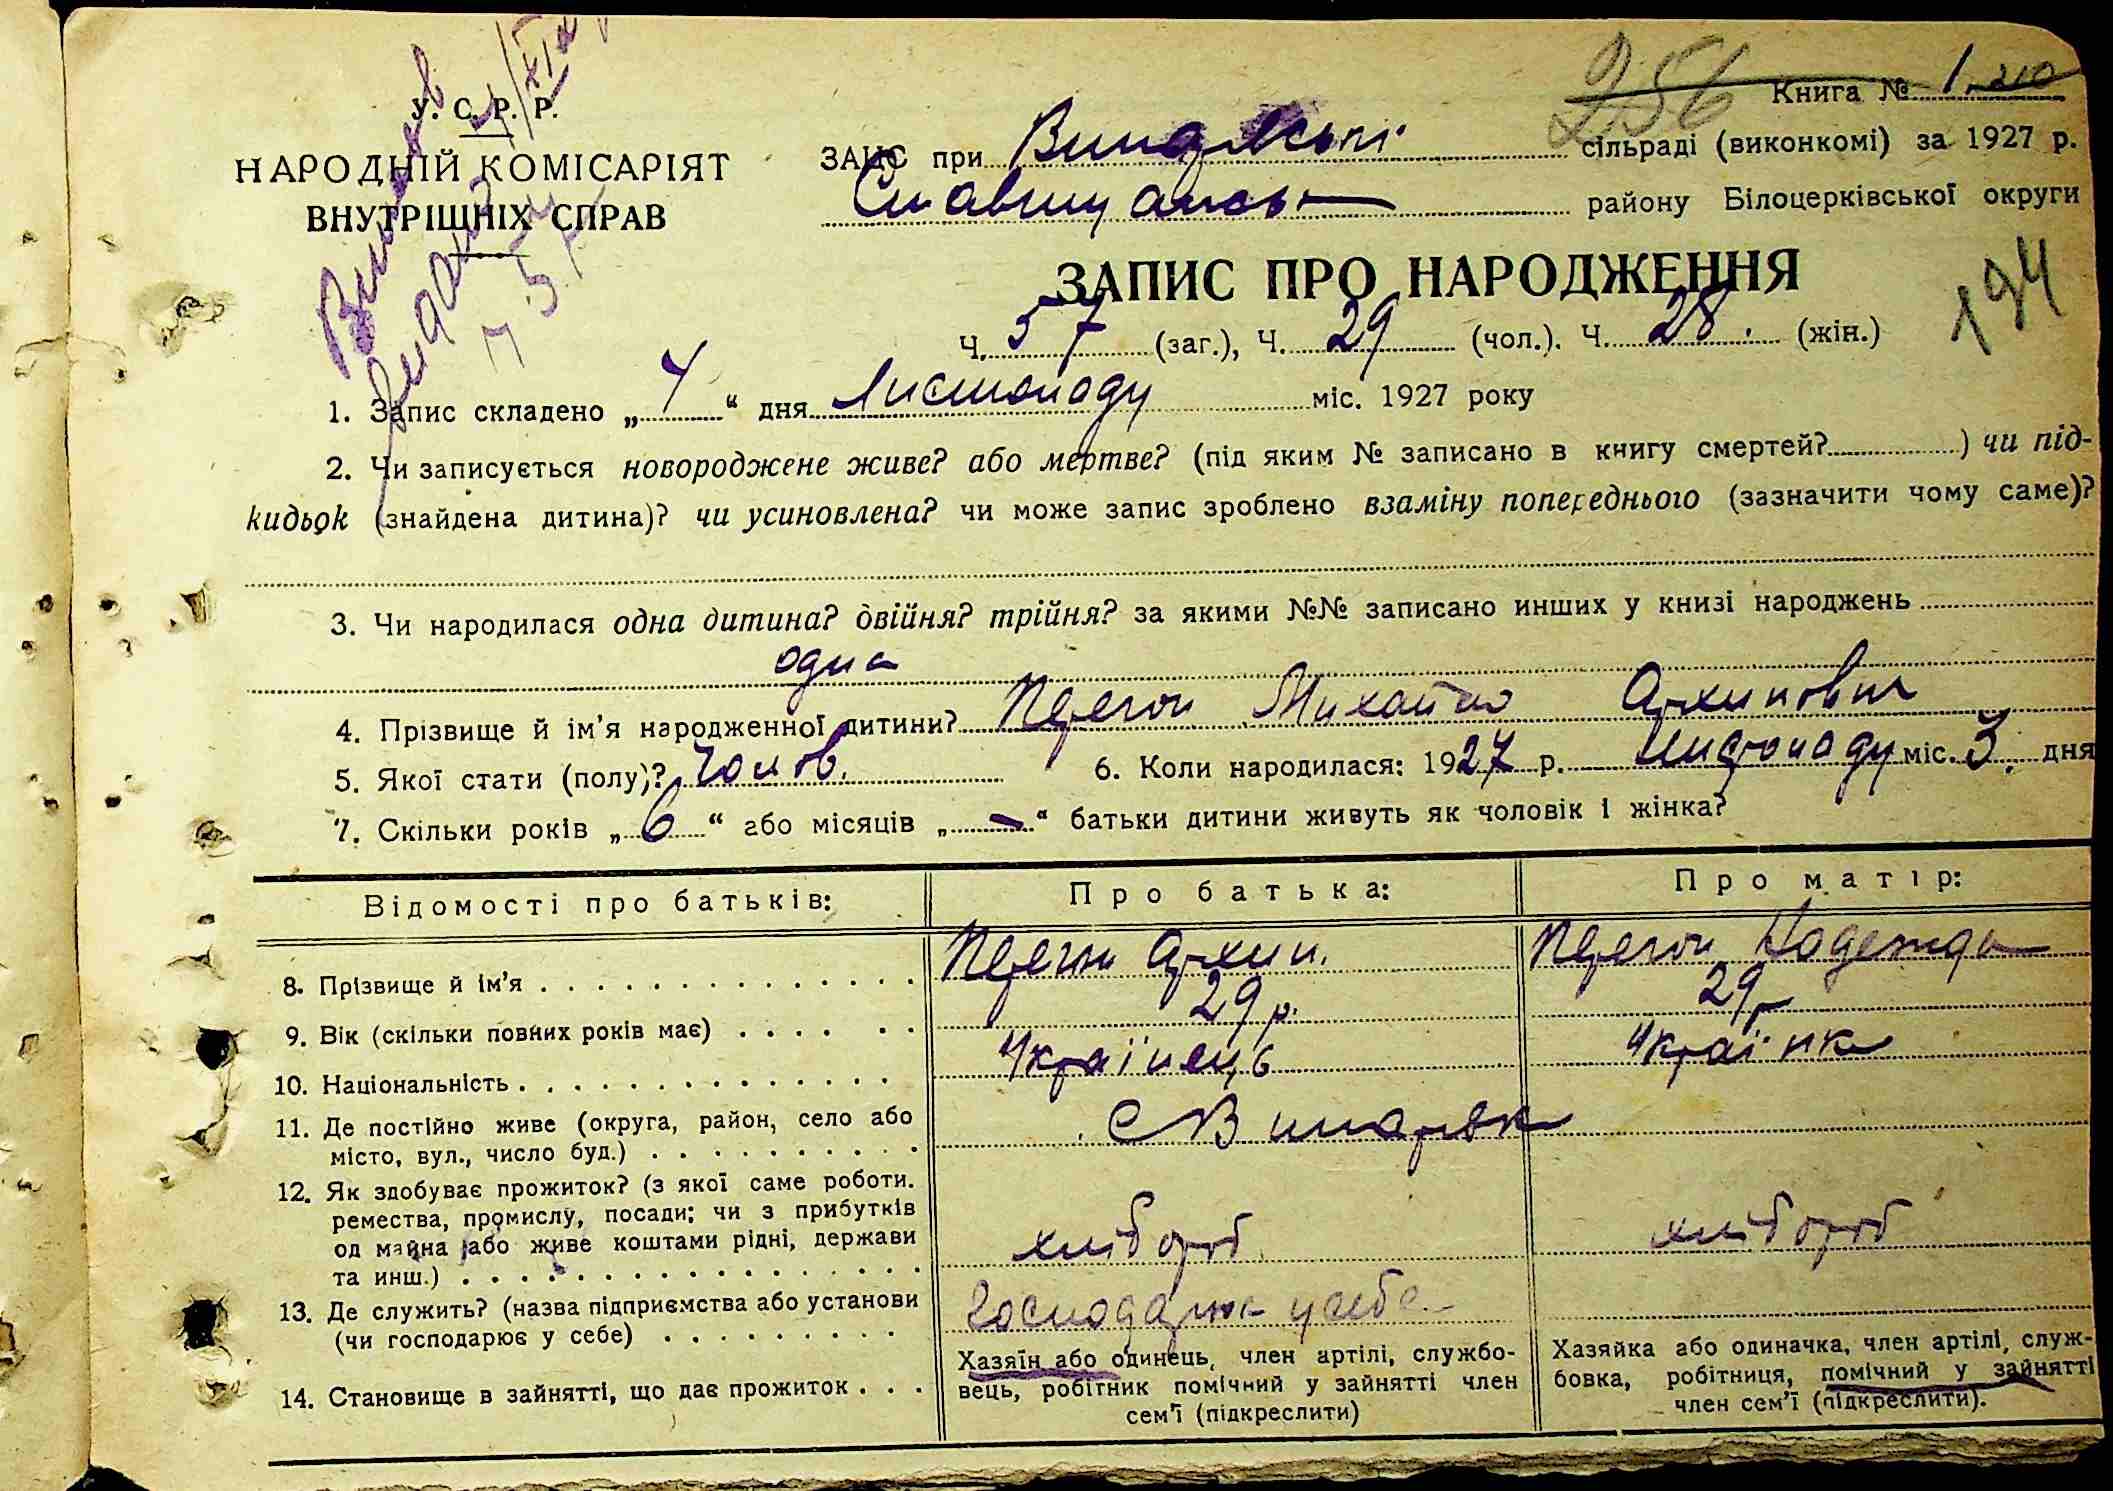 256 Книга № 1. 210
У. С. Р. Р.
НАРОДНІЙ КОМІСАРІЯТ
ВНУТРІШНІХ СПРАВ
ЗАГС при сільраді (виконкомі) за 1927 р.
Ставищанськ району Білоцерківської округи
ЗАПИС ПРО НАРОДЖЕННЯ
194
Ч. 57 (заг.), Ч. 29 (чол.). Ч. 28. (жін.)
1. Запис складено „ 4 “ дня Листопаду міс. 1927 року
2. Чи записується новороджене живе? або мертве? (під яким № записано в книгу смертей? ) чи під-
кидьок (знайдена дитина)? чи усиновлена? чи може запис зроблено взаміну попереднього (зазначити чому саме)?
3. Чи народилася одна дитина? двійня? трійня? за якими №№ записано инших у книзі народжень
одна
4. Прізвище й ім'я народженної дитини? Михайло Архипович
5. Якої стати (полу)? Чолов. 6. Коли народилася: 1927 р. Листопаду міс. 3. дня
7. Скільки років „ 6 “ або місяців „ - “ батьки дитини живуть як чоловік і жінка?
Відомості про батьків: Про батька: Про матір:
8. Прізвище й ім'я Архип. Надежда
9. Вік (скільки повних років має) 29 р. 29 р
10. Національність Українець Українка
11. Де постійно живе (округа, район, село або
місто, вул., число буд.)
12. Як здобуває прожиток? (з якої саме роботи.
ремества, промислу, посади; чи з прибутків
од майна або живе коштами рідні, держави
та инш.) хлібороб хлібороб
13. Де служить? (назва підприємства або установи
(чи господарює у себе) Господарює у себе
14. Становище в зайнятті, що дає прожиток
Хазяїн або одинець, член артілі, службо-
вець, робітник помічний у зайнятті член
сем'ї (підкреслити)
Хазяйка або одиначка, член артілі, служ-
бовка, робітниця, помічний у зайнятті
член сем'ї (підкреслити).